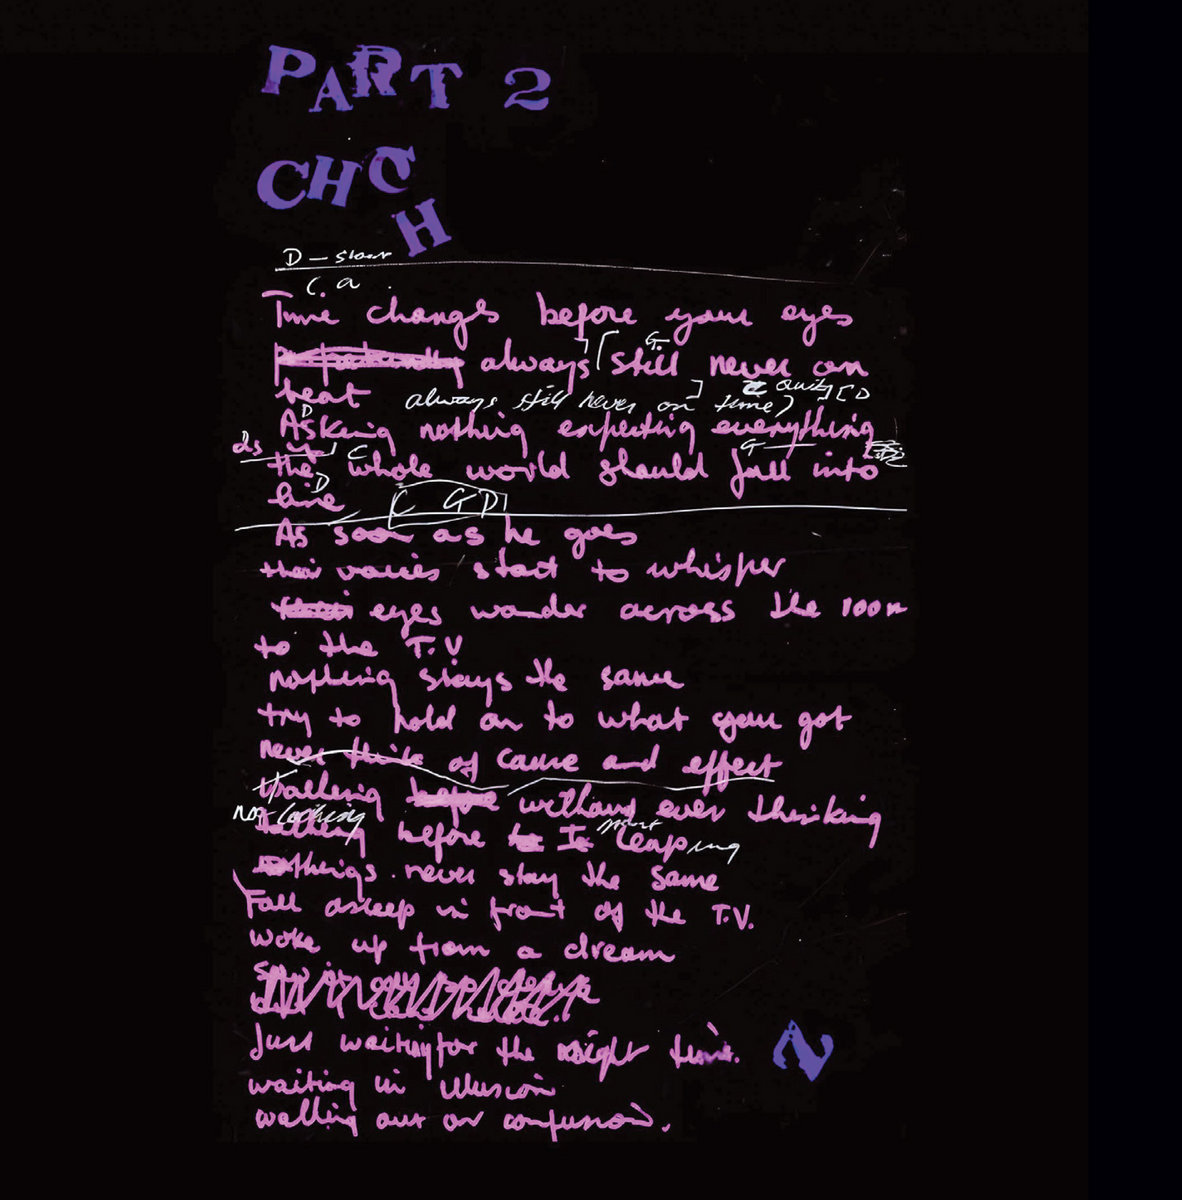 PART 2
CHCH
D – slow
C. a.
Time changes before your eyes
always [still never on
beat always still never on time)
Asking nothing expecting everything
the whole world should fall into
line C G D
As soon as he goes
their voices start to whisper
eyes wander across the room
to the T.V
nothing stays the same
try to hold on to what you got
never think of cause and effect
without ever thinking
not looking before leaping
things never stay the same
Fall asleep in front of the T.V.
woke up from a dream
Just waiting for the right time.
waiting in illusion
walling out on confusion.
2